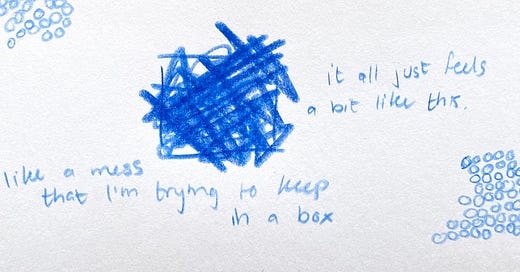 it all just feels
a bit like this.
like a mess
that I'm trying to keep
in a box